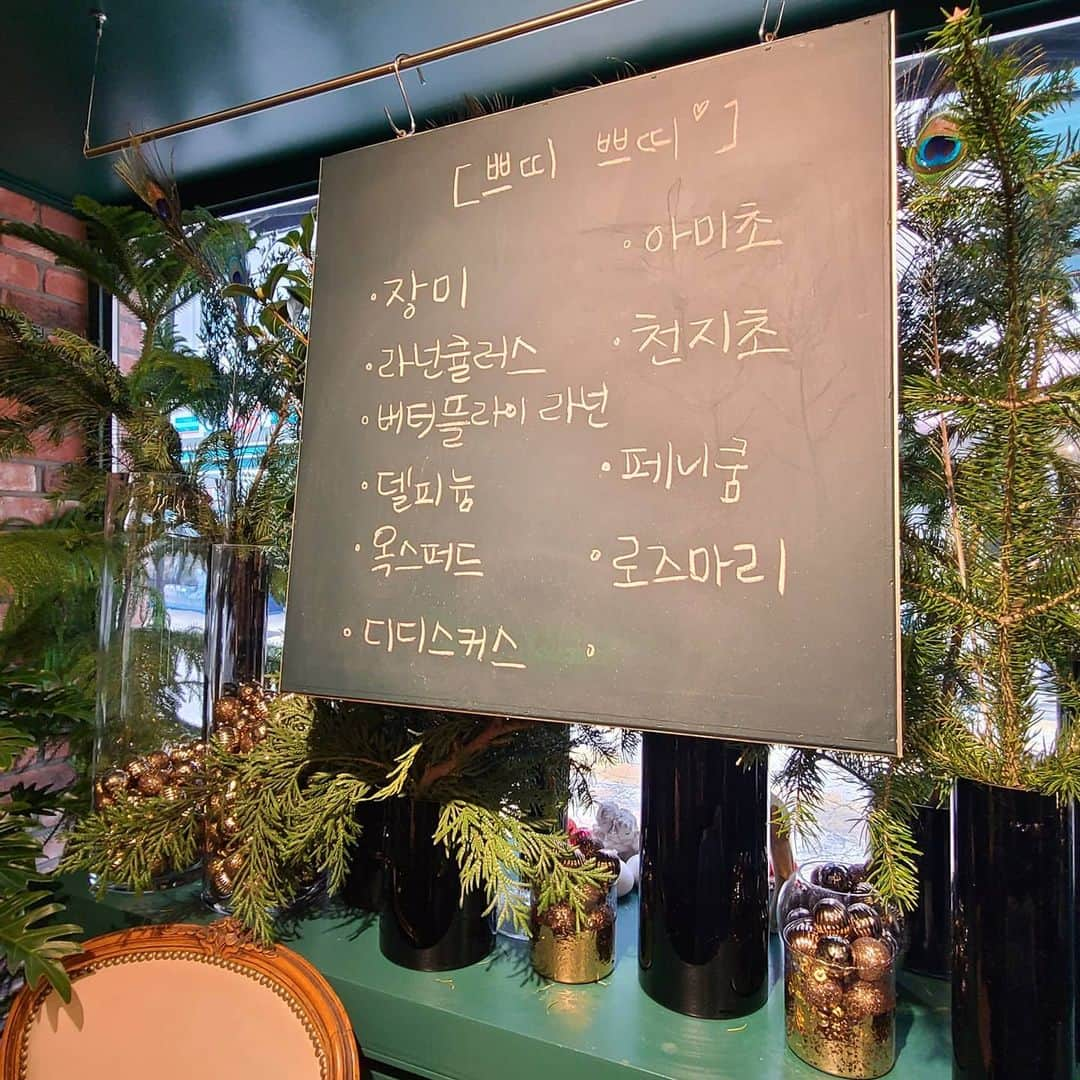 [쁘띠 쁘띠♡]
·장미
·라넌큘러스
·버터플라이 라넌
·델피늄
·옥스퍼드
·디디스커스
·아미초
·천지초
·페니쿰
·로즈마리